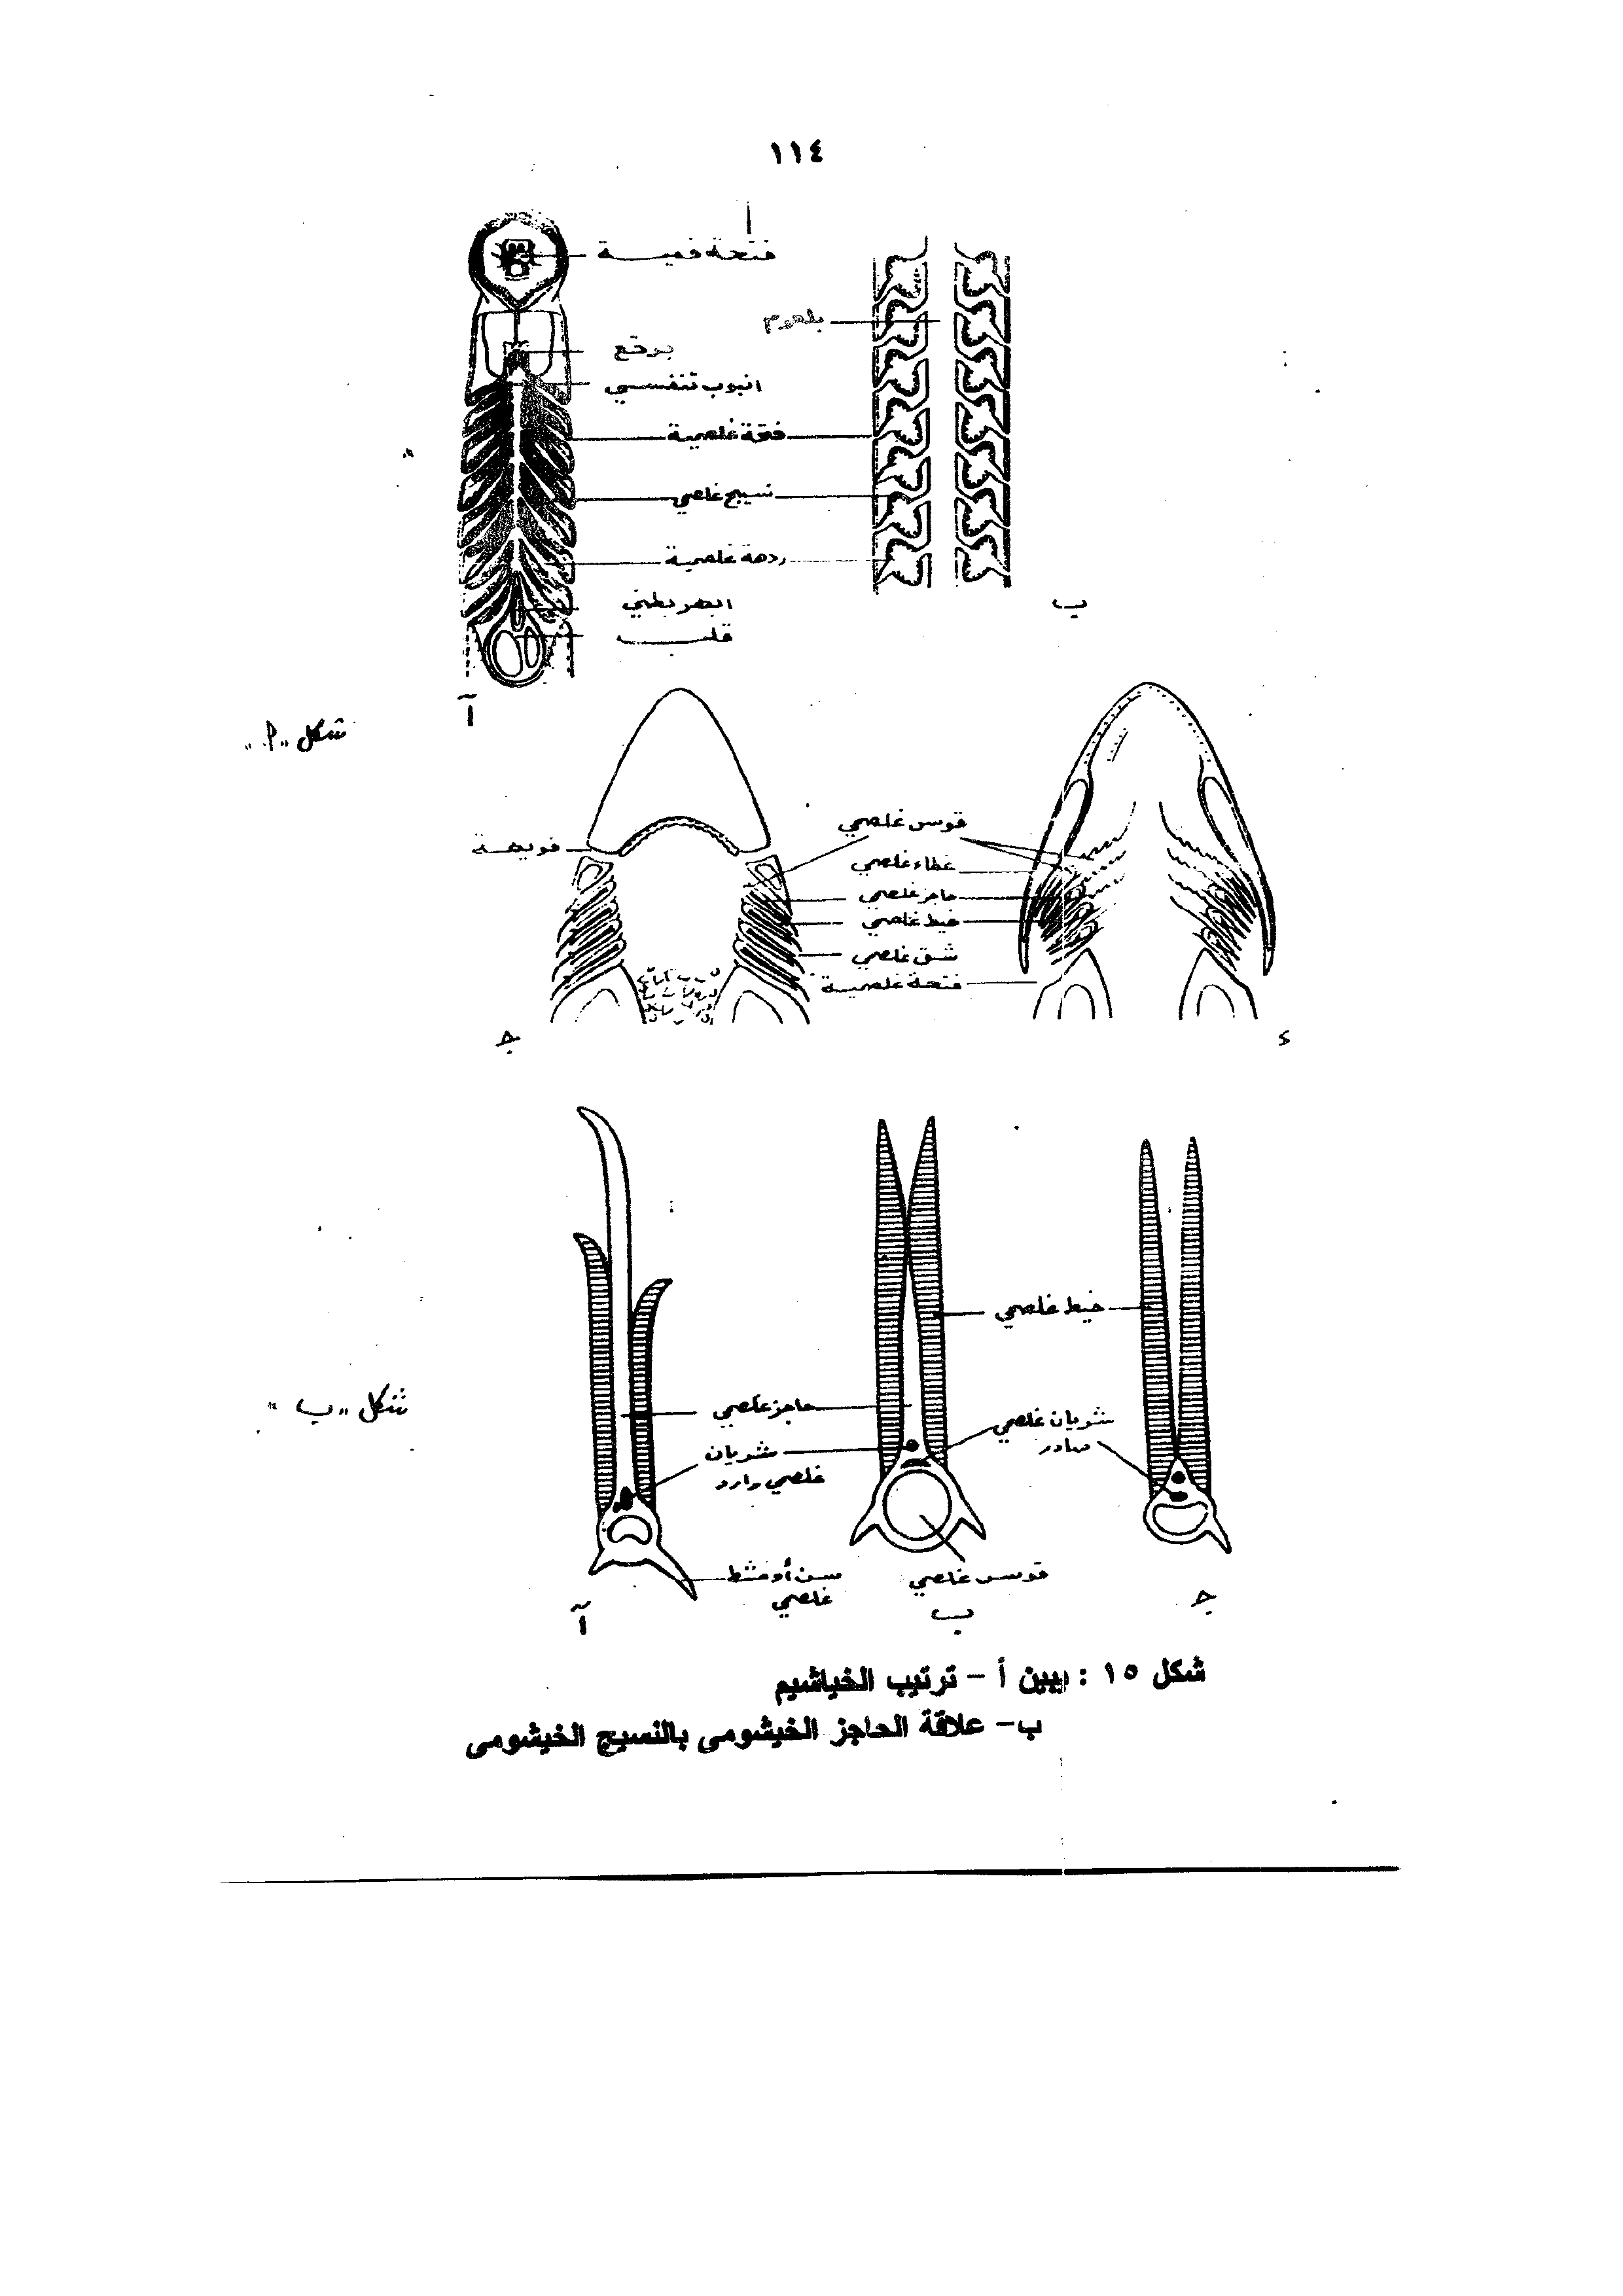 ١١٤
فتحة فمية
بلعوم
برقع
انبوب تنفسي
فتحة غلصمية
نسيج غلصمي
ردهة غلصمية
ابهر بطني
قلب
ب
آ
شكل „أ“
قوس غلصمي
فويهة
غطاء غلصمي
حاجز غلصمي
خيط غلصمي
شق غلصمي
فتحة غلصمية
جـ
ء
خيط غلصمي
شكل „ب“
حاجز غلصمي
شريان غلصمي
صادر
شريان
غلصمي وارد
سن أو مشط
غلصمي
قوس غلصمي
آ
ب
جـ
شكل ١٥ : يبين أ - ترتيب الخياشيم
ب- علاقة الحاجز الخيشومى بالنسيج الخيشومى